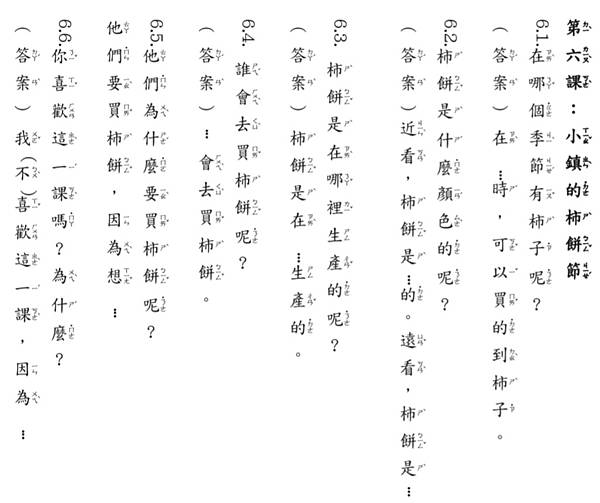 第六課：小鎮的柿餅節
6.1. 在哪個季節有柿子呢？
（答案）在…時，可以買的到柿子。
6.2. 柿餅是什麼顏色的呢？
（答案）近看，柿餅是…的。遠看，柿餅是…
6.3. 柿餅是在哪裡生產的呢？
（答案）柿餅是在…生產的。
6.4. 誰會去買柿餅呢？
（答案）…會去買柿餅。
6.5. 他們為什麼要買柿餅呢？
他們要買柿餅，因為想…
6.6. 你喜歡這一課嗎？為什麼？
（答案）我（不）喜歡這一課，因為…